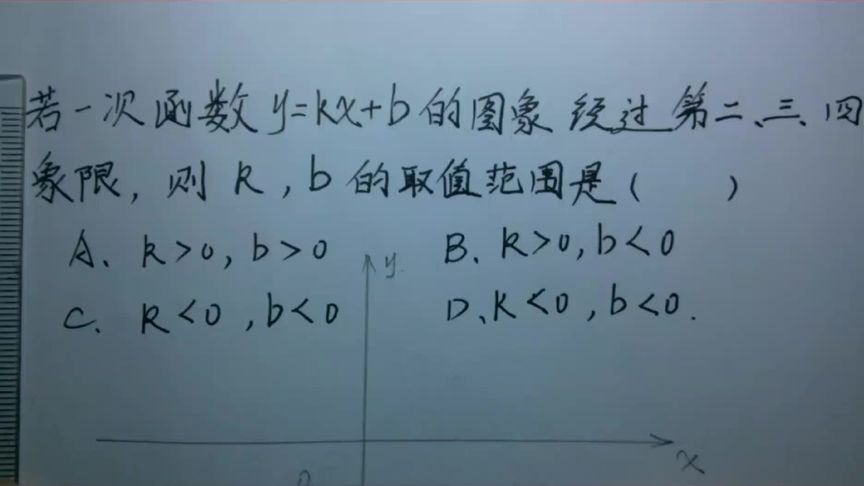 若一次函数y=kx+b的图象经过第二、三、四
象限，则k，b的取值范围是（　　）
A、k>0，b>0　　B、k>0，b<0
C、k<0，b<0　　D、k<0，b<0.
y
x
0